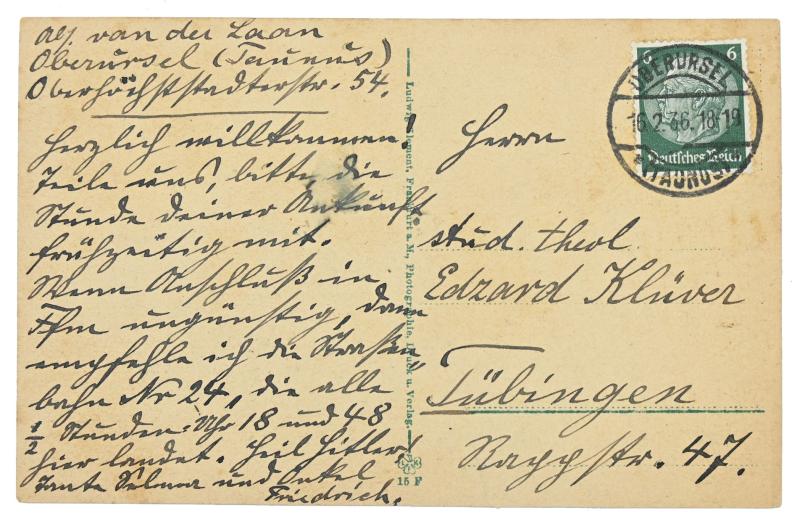 van der Laan
Oberursel (Taunus)
Oberhöchststadterstr. 54.
Herzlich willkommen!
Teile uns, bitte, die
Stunde deiner Ankunft
frühzeitig mit.
Wenn Anschluß in
Ffm ungünstig, dann
empfehle ich die Straßen„
bahn Nr 24, die alle
1/2 Stunden: Uhr 18 und 48
hier landet. Heil Hitler!
Tante Selma und Onkel
Friedrich.
Ludwig Klement, Frankfurt a. M., Photographie, Druck u. Verlag.
15 F
6 6
Deutsches Reich
OBERURSEL
16.2.36.18-19
(TAUNUS)
Herrn
stud. theol
Edzard Klüver
Tübingen
Rappstr. 47.